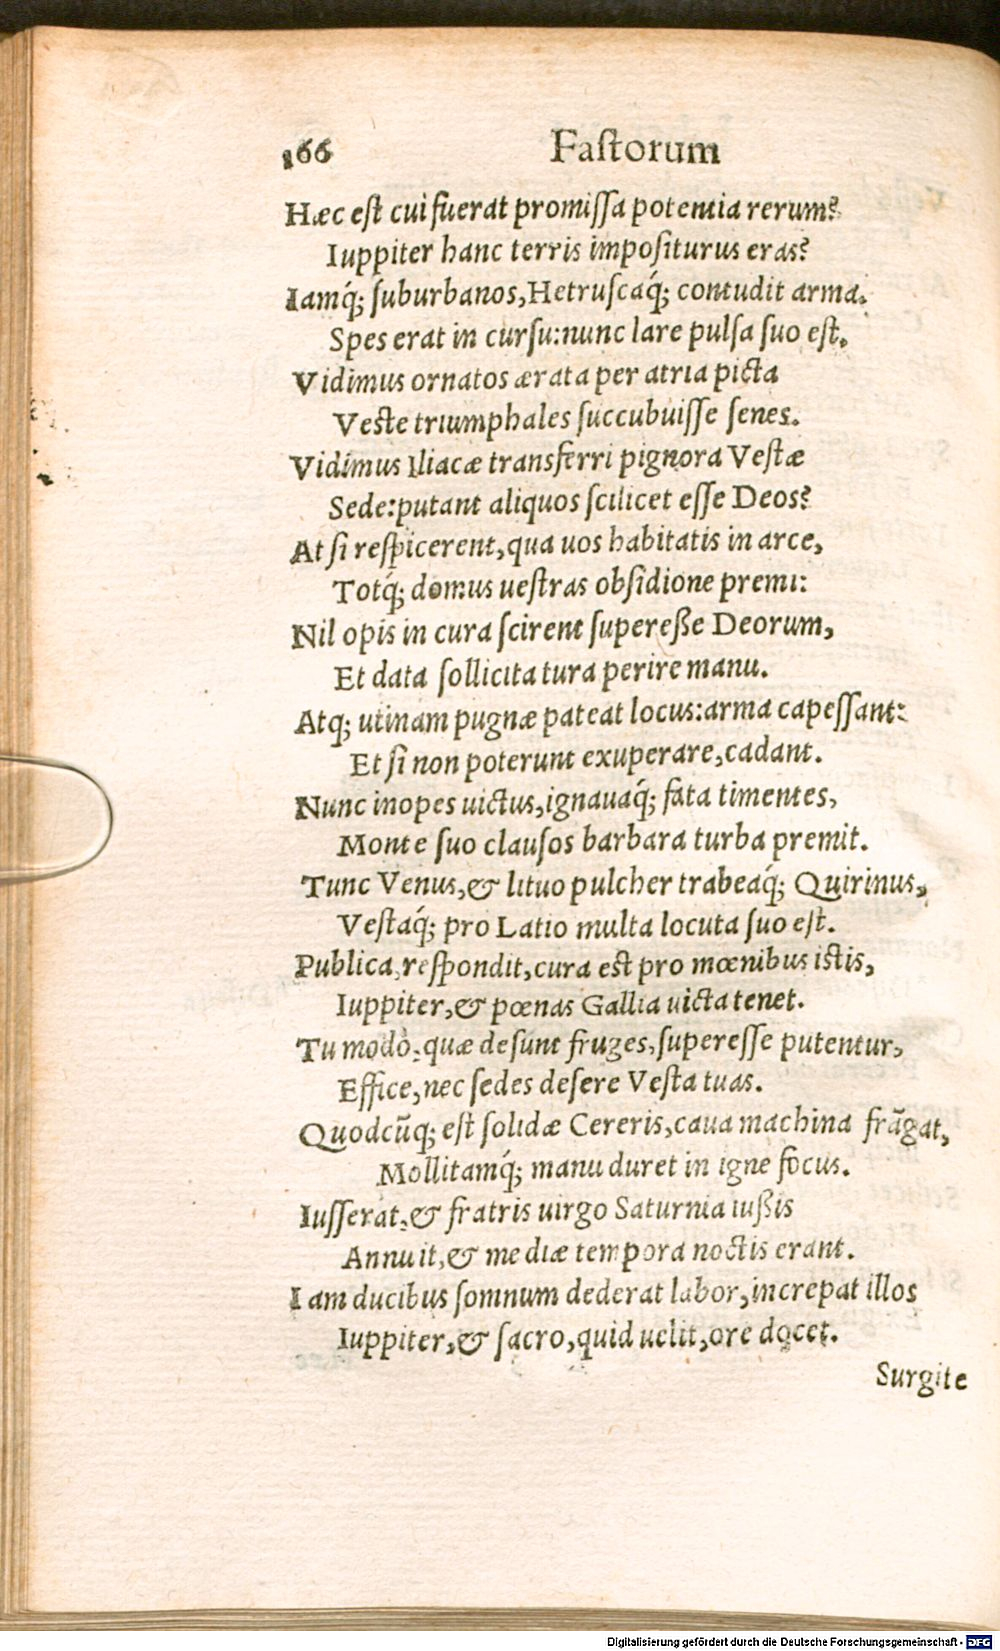 166 Faſtorum
Hæc eſt cui fuerat promiſſa potentia rerum?
Iuppiter hanc terris impoſiturus eras?
Iamq́; ſuburbanos, Hetruſcaq́; contudit arma.
Spes erat in curſu: nunc lare pulſa ſuo eſt.
Vidimus ornatos ærata per atria picta
Veſte triumphales ſuccubuiſſe ſenes.
Vidimus Iliacæ transferri pignora Veſtæ
Sede: putant aliquos ſcilicet eſſe Deos?
At ſi reſpicerent, qua uos habitatis in arce,
Totq́; domus ueſtras obſidione premi:
Nil opis in cura ſcirent ſupereße Deorum,
Et data ſollicita tura perire manu.
Atq; utinam pugnæ pateat locus: arma capeſſant:
Et ſi non poterunt exuperare, cadant.
Nunc inopes uictus, ignauaq́; fata timentes,
Monte ſuo clauſos barbara turba premit.
Tunc Venus, & lituo pulcher trabeaq́; Quirinus,
Veſtaq́; pro Latio multa locuta ſuo eſt.
Publica, reſpondit, cura eſt pro mœnibus iſtis,
Iuppiter, & pœnas Gallia uicta tenet.
Tu modò, quæ deſunt fruges, ſupereſſe putentur,
Effice, nec ſedes deſere Veſta tuas.
Quodcũq; eſt ſolidæ Cereris, caua machina frãgat,
Mollitamq́; manu duret in igne focus.
Iuſſerat, & fratris uirgo Saturnia iußis
Annuit, & mediæ tempora noctis erant.
Iam ducibus ſomnum dederat labor, increpat illos
Iuppiter, & ſacro, quid uelit, ore docet.
Surgite
Digitalisierung gefördert durch die Deutsche Forschungsgemeinschaft - DFG